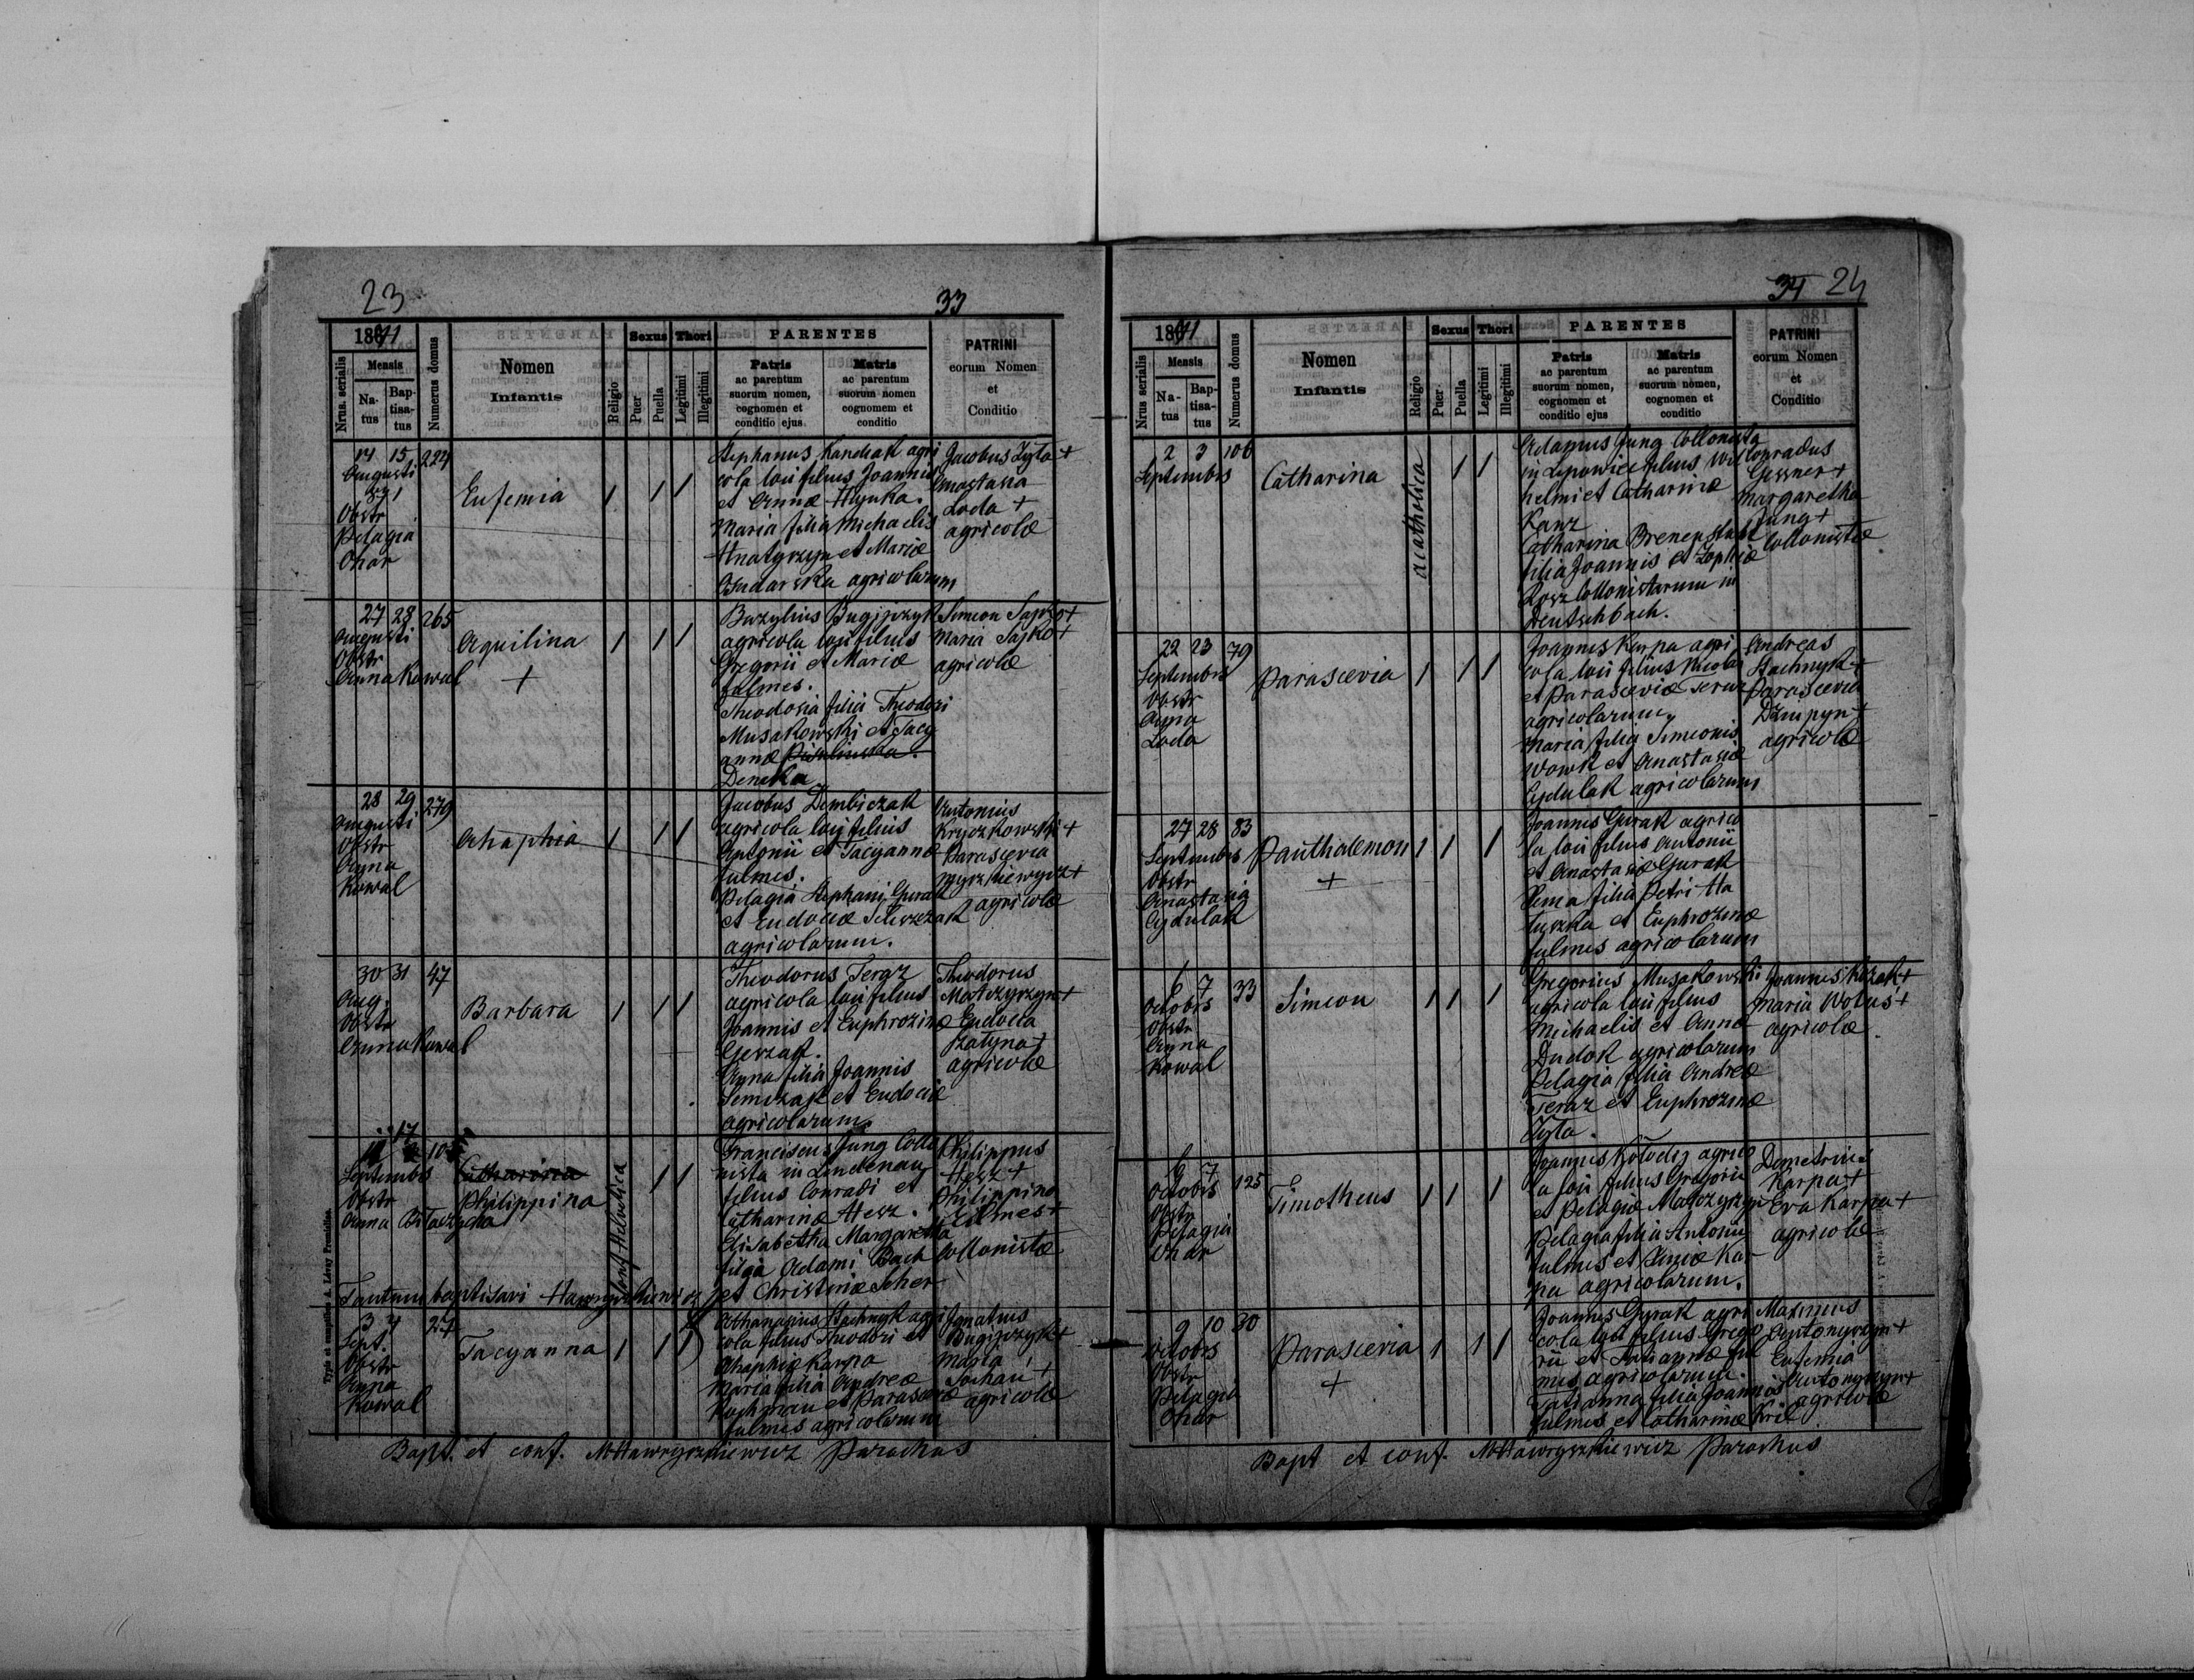 23
33
1871
Nrus. serialis
Mensis
Na-
tus
Bap-
tisa-
tus
Numerus domus
Nomen
Infantis
Religio
Sexus
Puer
Puella
Thori
Legitimi
Illegitimi
PARENTES
Patris
ac parentum
suorum nomen,
cognomen et
conditio ejus
Matris
ac parentum
suorum nomen
cognomem et
conditio
PATRINI
eorum Nomen
et
Conditio
14 15 224
Augusti
871
Obstr
Pelagia
Ohar
Eufemia
Stephanus Kandiak agri
cola loci filius Joannis
et Annæ Hynka.
Maria filia Michaelis
Hnatyszyn et Mariæ
agricolarum
Jacobus Zyla +
Anastasia
Loda +
agricolæ
27 28 265
Augusti
Obstr
Anna Kowal
Aquilina
+
Bazylius
agricola loci filius
Gregorii et Mariæ
fulmes.
Theodosia filia Theodori
Musakowski et Tacy
annæ
Deneka
Simeon Sapko +
Maria Sajko +
agricolæ
28 29 279
Augusti
Obstr
Anna
Kowal
Ahaphia
Jacobus Dembiczak
agricola loci filius
Antonii et Tacyannæ
fulmes.
Pelagia Stephani Gurak
et Eudociæ
agricolarum.
Antonius
Kryczkowski +
Parascevia
agricolæ
30 31 47
Aug.
Obstr
Anna Kowal
Barbara
Theodorus Feraz
agricola loci filius
Joannis et Euphrozinæ
Anna filia Joannis
Semczak et Eudociæ
agricolarum.
Theodorus
Matczyszyn +
Eudocia
Zatyna +
agricolæ
Septembs
Obstr
Anna Bilaczycha
Catharina
Philippina
conf. Helvetica
Franciscus Jung Collo
nista in Lindenau
filius Conradi et
Catharinæ Hesz.
Elisabetha Margaretha
filia Adami Bach
et Christinæ Scher
Philippus
Hesz +
Philippina
Filmes +
Collonistæ
Tantum baptisavi Hawryszkiewicz
3 4 27
Sept.
Obstr
Anna
Kowal
Tacyanna
Athanasius Stachnyk agri
cola filius Theodori et
Ahaphiæ Karpa
Maria filia Andreæ
Kochman et Parasceviæ
fulmes agricolarum
Ignatius
Maria
Sochan +
agricolæ
Bapt. et conf. M Hawryszkiewicz Parochus
34 24
1871
Nrus serialis
Mensis
Na-
tus
Bap-
tisa-
tus
Numerus domus
Nomen
Infantis
Religio
Sexus
Puer
Puella
Thori
Legitimi
Illegitimi
PARENTES
Patris
ac parentum
suorum nomen,
cognomen et
conditio ejus
Matris
ac parentum
suorum nomen,
cognomen et
conditio
PATRINI
eorum Nomen
et
Conditio
2 3 106
Septembris
Catharina
acatholica
Adamus Jung Collonista
in Lipowiec filius Wil
helmi et Catharinæ
Kanz
Catharina
filia Joannis et Zophiæ
Losz Collonistarum in
Deutschbach.
Conradus
Gessner +
Margaretha
Jung +
Collonistæ
22 23 79
Septembris
Obstr
Anna
Loda
Parascevia
Joannes Karpa agri
cola loci filius Nicolai
et Parasceviæ Feraz
agricolarum,
Maria filia Simeonis
Wowk et Anastasiæ
Cydulak agricolarum
Andreas
Stachnyk +
Parascevia
Dzmipyn +
agricolæ
27 28 83
Septembris
Obstr
Anastasia
Cydulak
Panthalemon
+
Joannes Gurak agrico
la loci filius Antonii
et Anastasiæ Gurak
Xenia filia Petri Ha
luszka et Euphrozinæ
fulmes agricolarum
6 7 33
Octobris
Obstr
Anna
Kowal
Simeon
Gregorius Musakowski
agricola loci filius
Michaelis et Annæ
Dudok agricolarum
Pelagia filia Andreæ
Feraz et Euphrozinæ
Zyla.
Joannes Kozak +
Maria Wolus +
agricolæ.
6 7 125
Octobris
Obstr
Pelagia
Ohar
Timotheus
Joannes Kołodij agrico
la loci filius Gregorii
et Pelagiæ Matczyszyn
Pelagia filia Antonii
fulmes et Luciæ Kar
pa agricolarum.
Demetrius
Karpa +
Eva Karpa +
agricolæ
9 10 30
Octobris
Obstr
Pelagia
Ohar
Parascevia
+
Joannes Gyrak agri
cola loci filius Grego
rii et Tatiannæ ful
mes agricolarum.
Tatianna filia Joannis
fulmes et Catharinæ Kril
Maximus
Antonyszyn +
Eufemia
Antonyszyn +
agricolæ
Bapt et conf. M Hawryszkiewicz Parochus